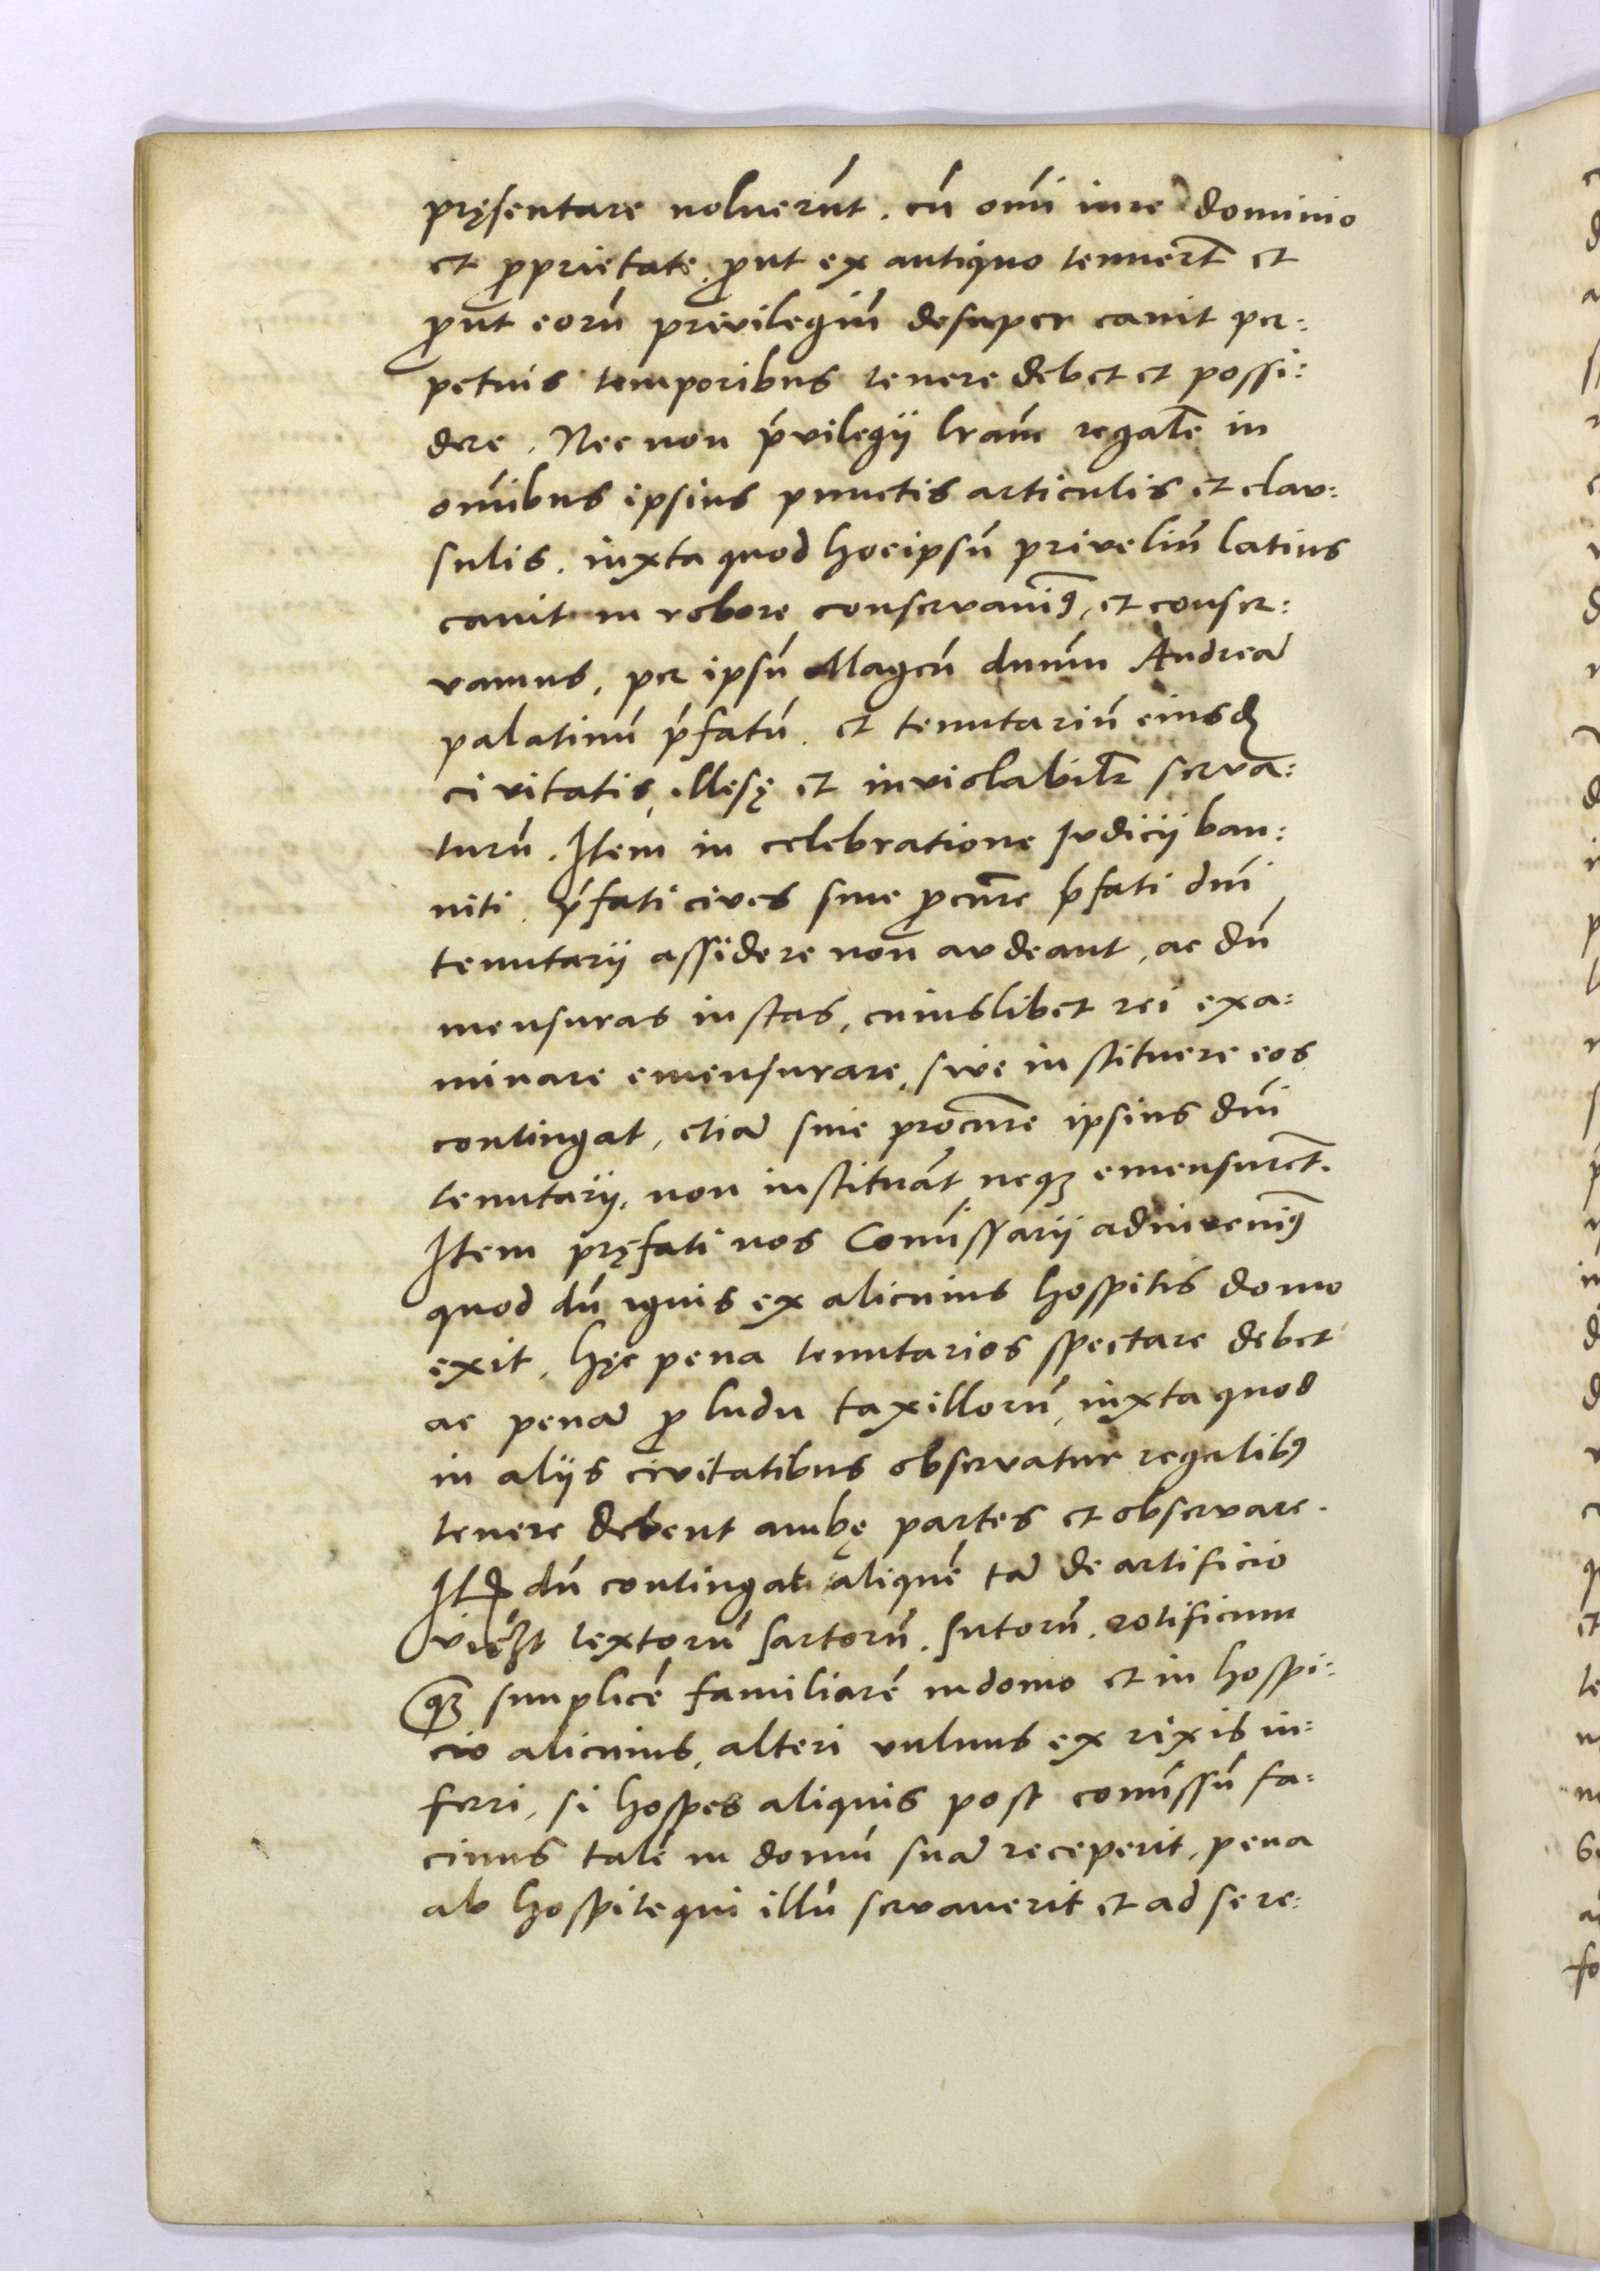 pręsentare noluerūt. cū om̄i iure dominio
et ꝓprietate. ꝓut ex antiquo tenuerт̄ et
ꝓut eorū previlegiū desuper canit per:
petuis temporibus tenere debet et possi:
dere. Nec non p̄vilegii l̄ram regalē in
om̄ibus ipsius punctis articulis et clav:
sulis. iuxta quod hocipsū priveliū latius
canit in robore conservavimꝰ, et conser:
vamus, per ipsū Magcū dnum Andreā
palatinū p̄fatū. et tenutariū eiusdē
civitatis, illesę et inviolabilr̄ serva:
turū. Item in celebratione Iudicii ban:
niti. p̄fati cives sine ꝓcure p̄fati dn̄i
tenutarii assidere non avdeant, ac dū
mensuras iustas, cuiuslibet rei exa:
minare emensurare, sive instituere eos
contingat, etiā sine procure ipsius dn̄i
tenutarii. non instituāt neqꝫ emensurēt.
Item pręfati nos Com̄issarii adinvenimꝰ
quod dū ignis ex alicuius hospitis domo
exit, hęc pena tenutarios spectare debet
ac penā ꝓ ludu taxillorū, iuxta quod
in aliis civitatibus observatur regalibꝰ
tenere debent ambę partes et observare.
Itē dū contingat aliquē tā de artificio
vicꝫt textorū sartorū. sutorū. rotificum
qꝫ simplicē familiarē in domo et in hospi:
cio alicuius, alteri vulnus ex rixis in:
ferri, si hospes aliquis post com̄issū fa:
cinus talē in domū suā receperit, pena
ab hospite qui illū servaverit et ad se re: